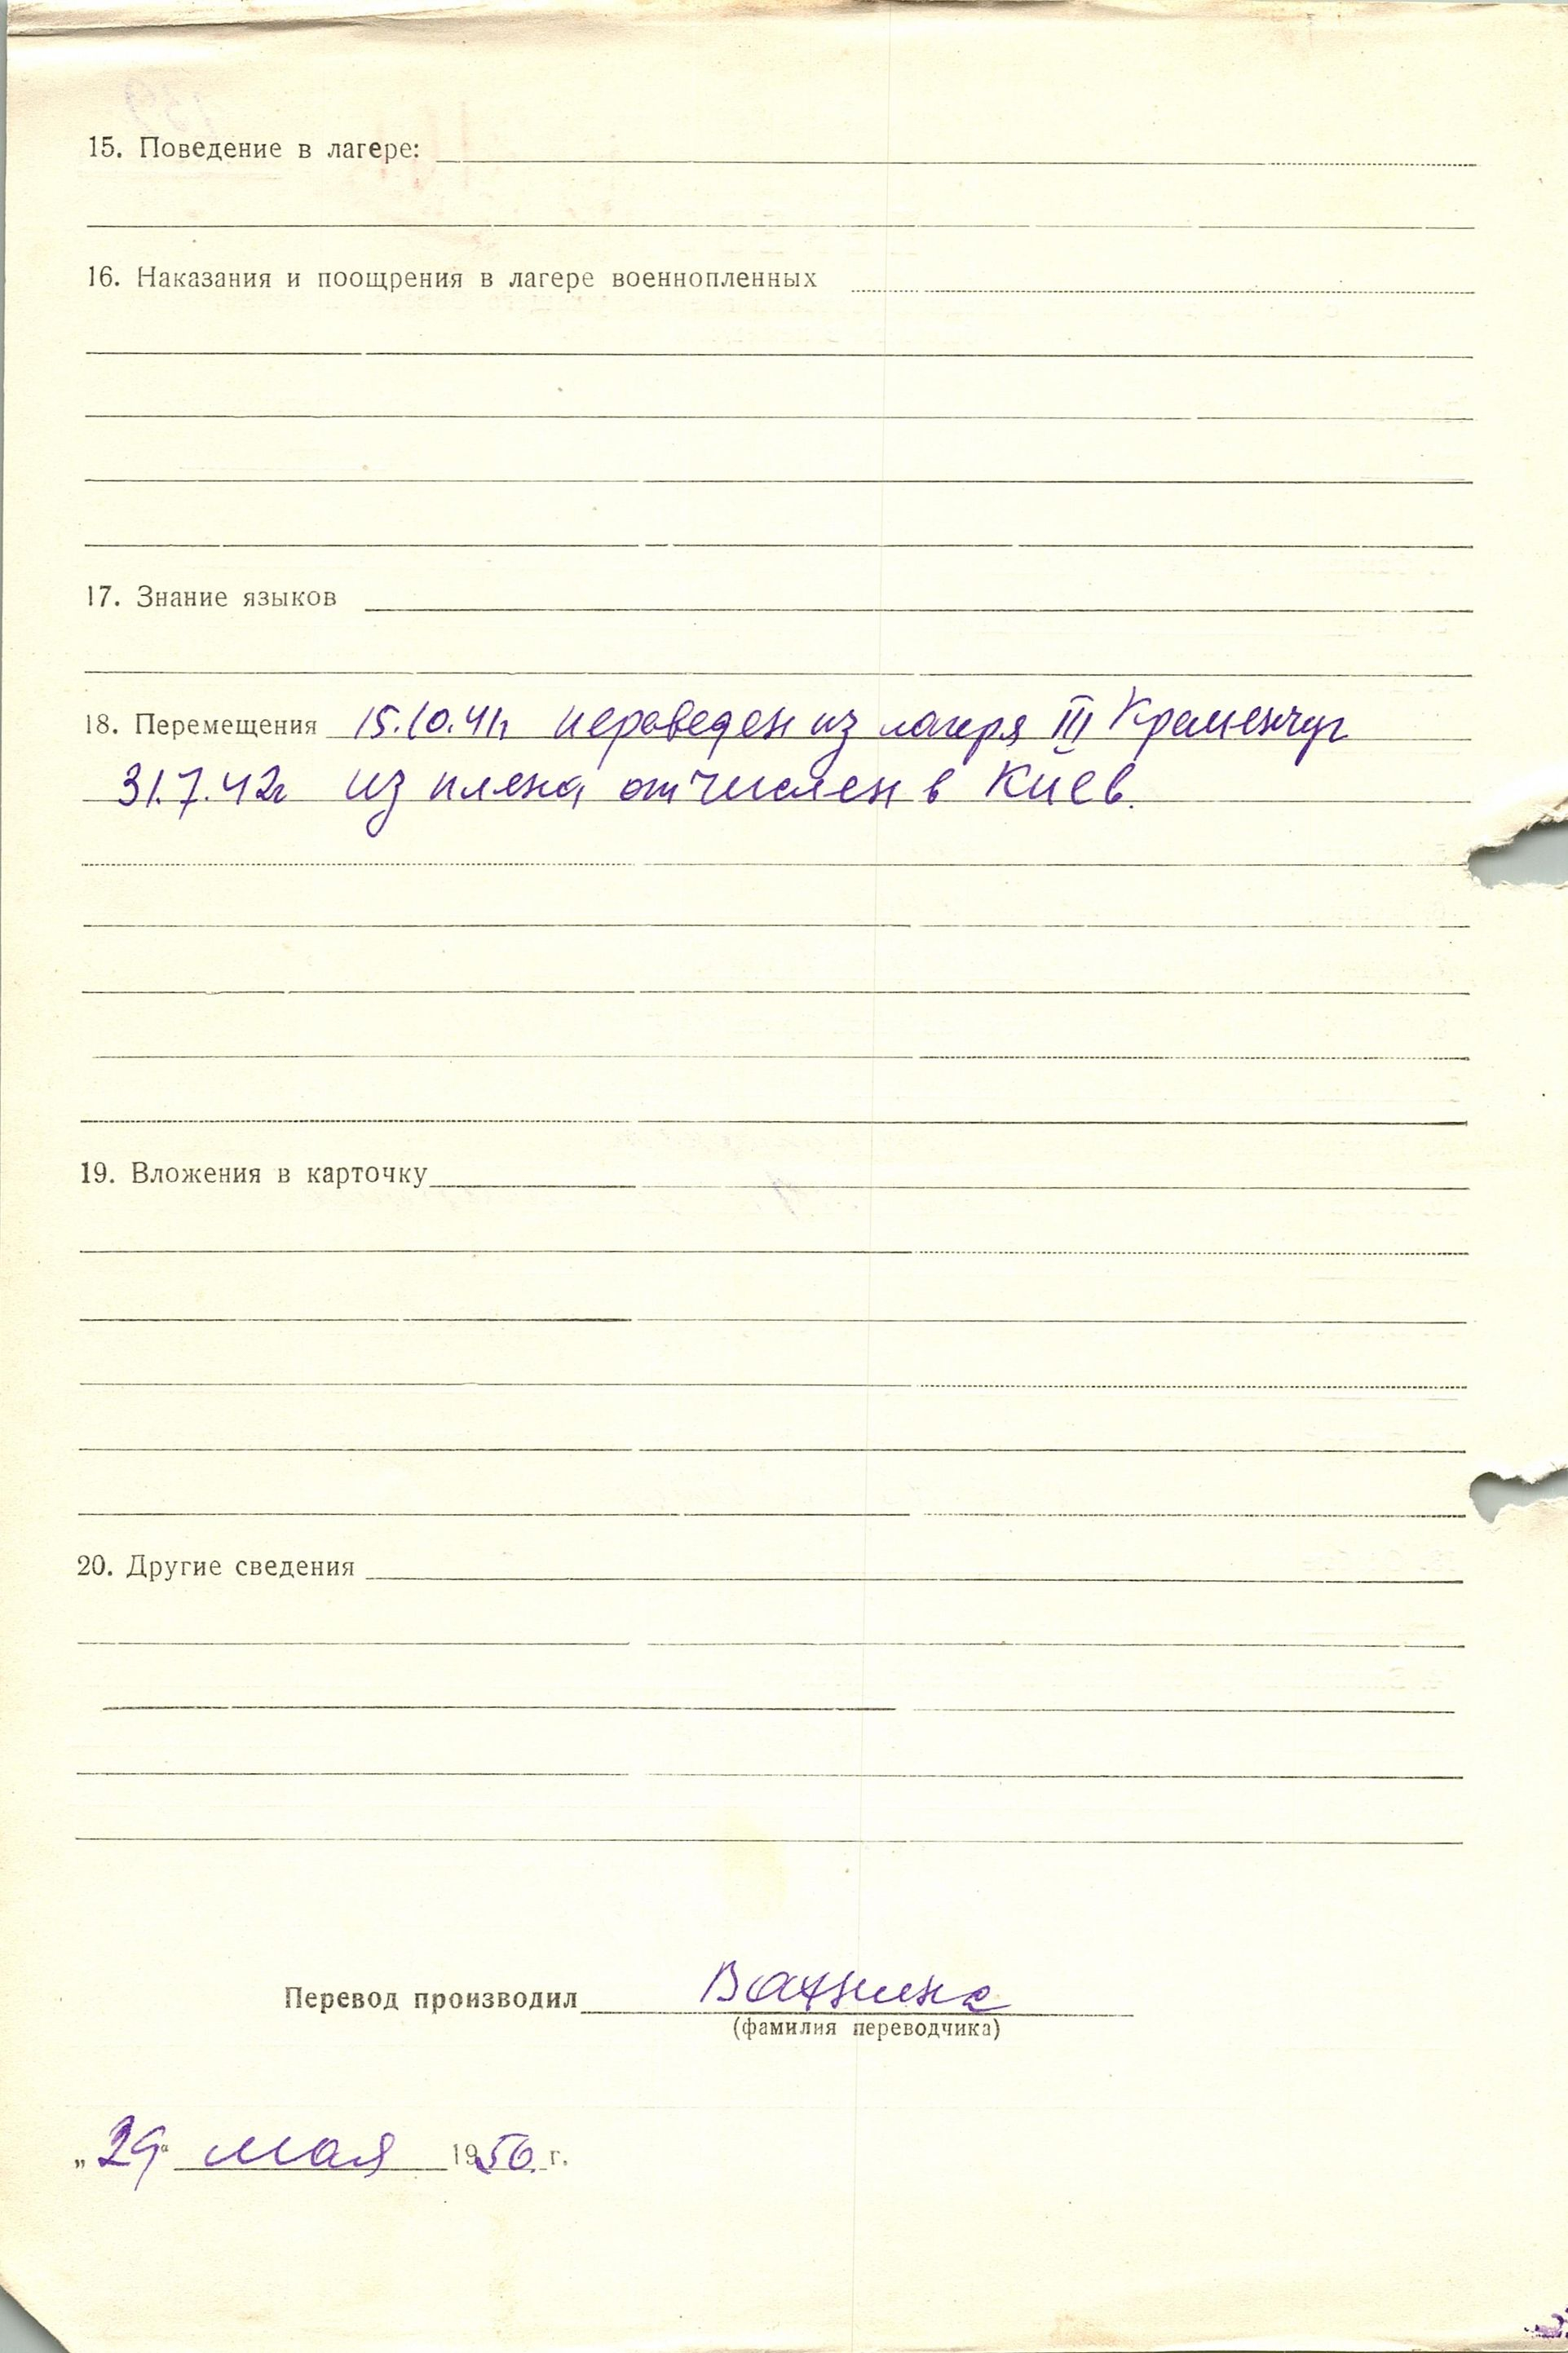 15. Поведение в лагере:
16. Наказания и поощрения в лагере военнопленных
17. Знание языков
18. Перемещения 15.10.41г переведен из лагеря III Кременчуг
31.7.42г из плена отчислен в Киев.
19. Вложения в карточку
20. Другие сведения
Перевод производил
(фамилия переводчика)
„29“ мая 1950 г.